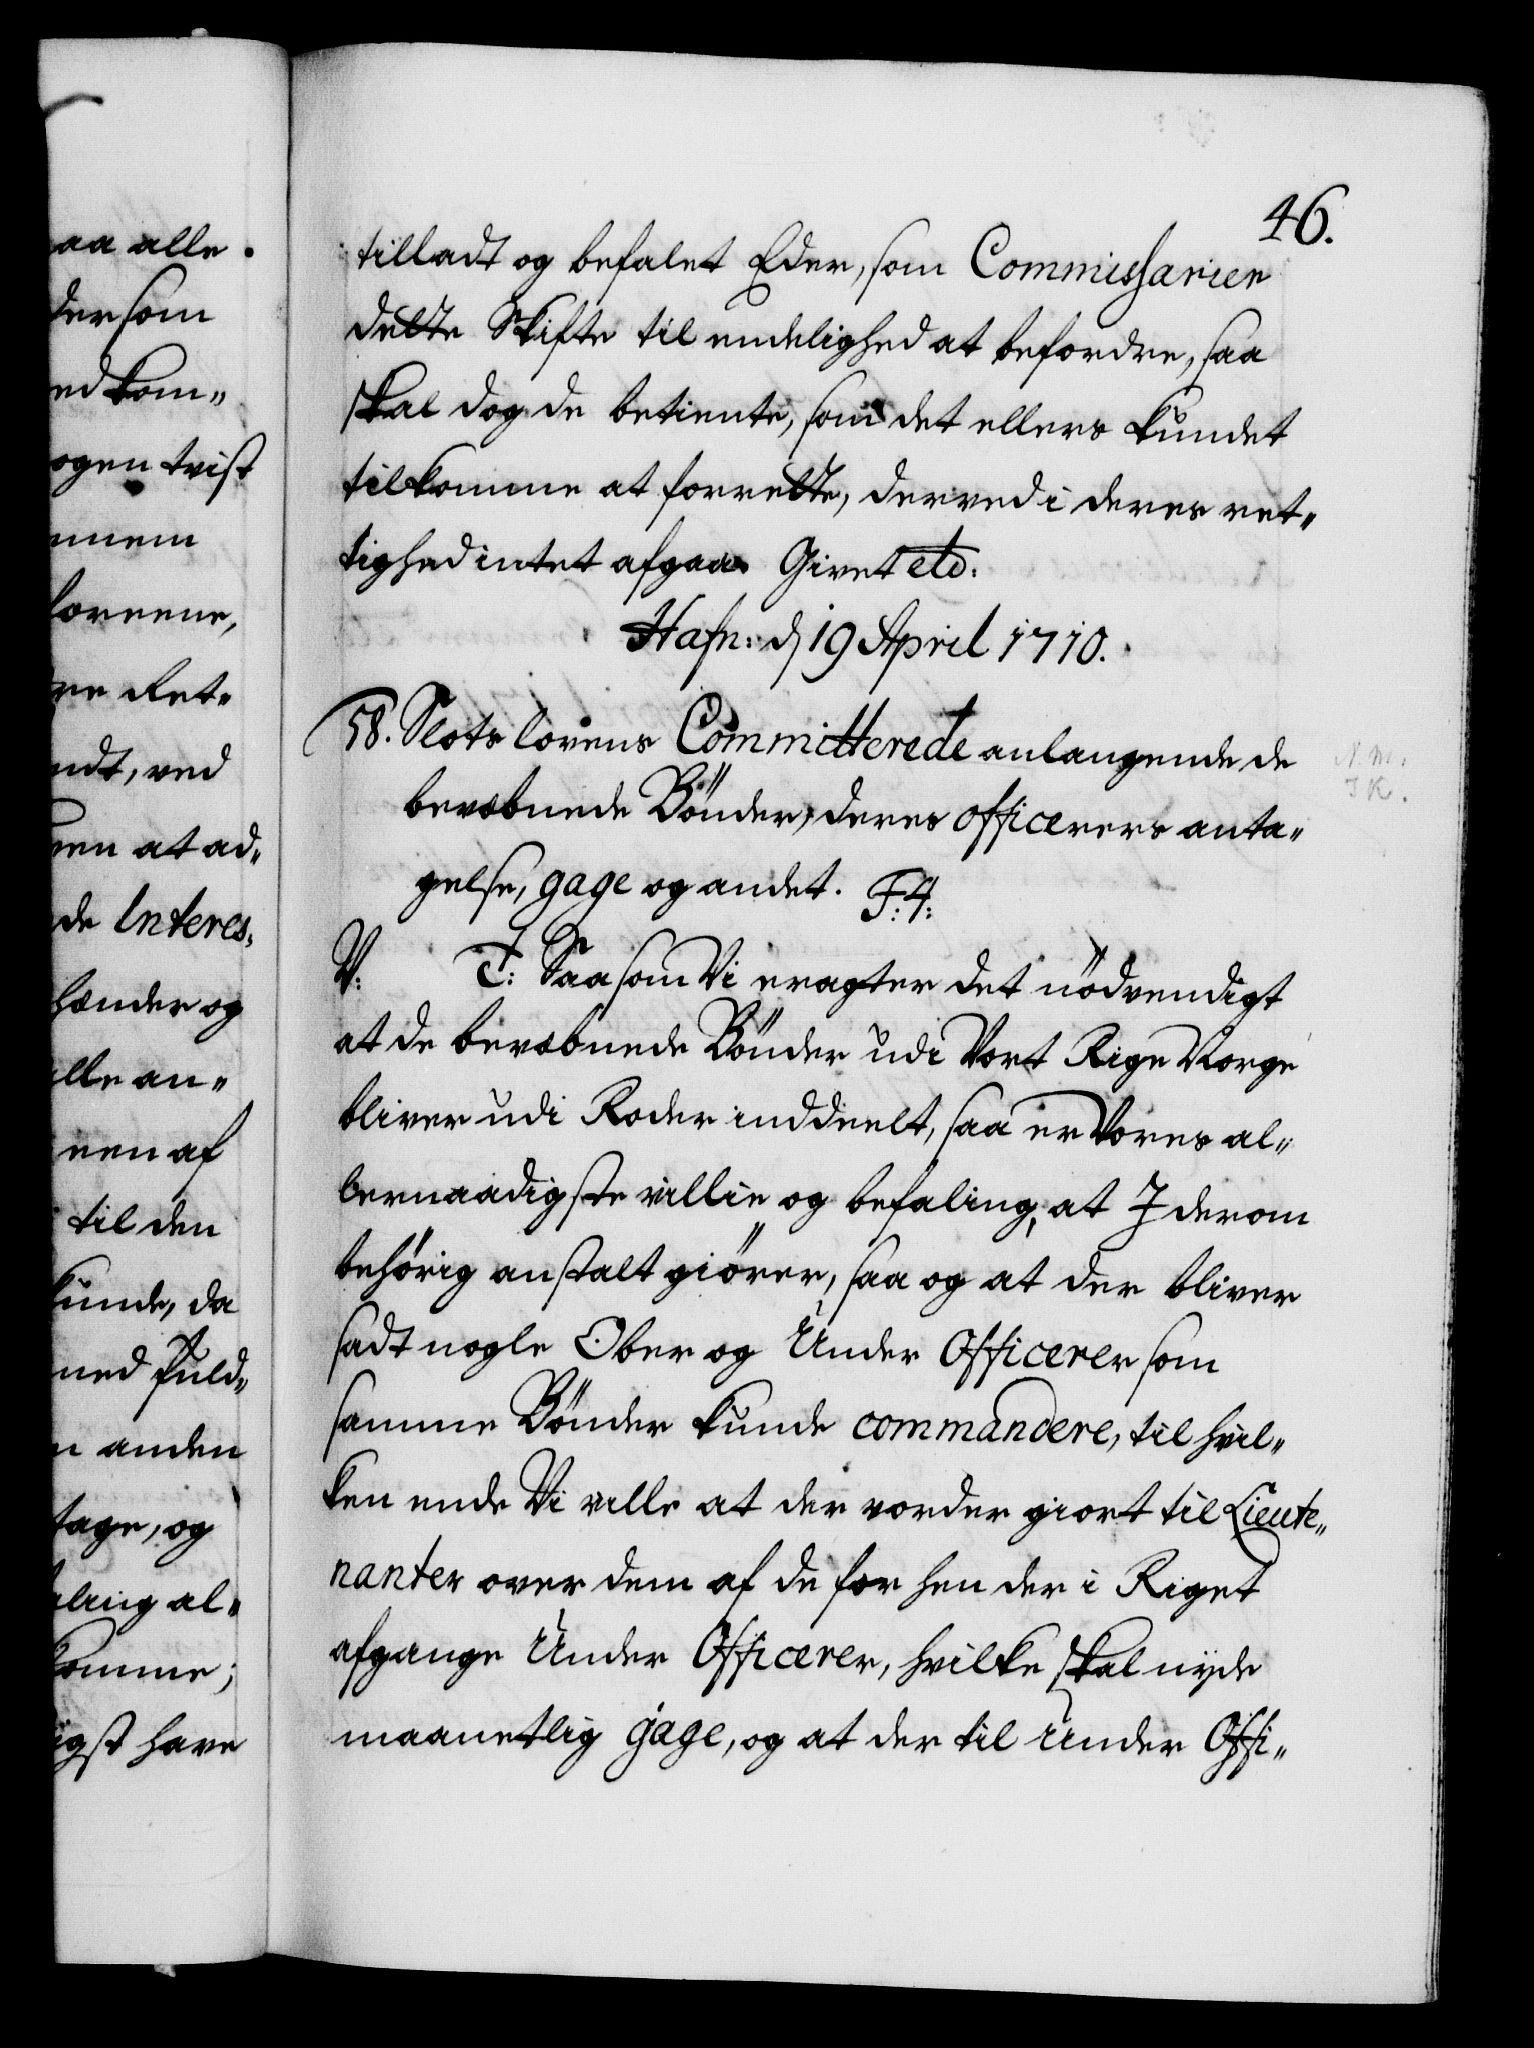 aa alle
dersom
ed kom„
ogen tvist
nnem
loveene,
re Ret„
ndt, ved
en at ad„
de Interes„
hænder og
lle an„
een af
til den
kunde, da
med Fuld„
n anden
tage, og
aling al„
komme;
igst have
46.
tilladt og befalet Eder, som Commissarier
delte Skifte til endelighed at befordre, saa
skal dog de betiente, som det ellers kundet
tilkomme at forrette, derved i deres ret„
tighed intet afgaa. Givet etc:
Hafn: d 19 April 1710.
58. Slots lovens Committerede anlangende de
bevæbnede Bönder, deres officerers anta„
gelse, gage og andet. F: 4:
V: T: Saasom Vi eragter det nödvendigt
at de bevæbnede Bönder udi Vort Rige Norge
bliver udi Roder inddeelt, saa er Vores al„
lernaadigste villie og befaling, at I derom
behörig anstalt giörer, saa og at der bliver
sadt nogle Ober og Under Officerer som
samme Bönder kunde commandere, til hvil„
ken ende Vi ville at der vorder giort til Lieute„
nanter over dem af de for hen der i Riget
afgange Under Officerer, hvilke skal nyde
maanetlig gage, og at der til Under Offi„
N. M.
I K.